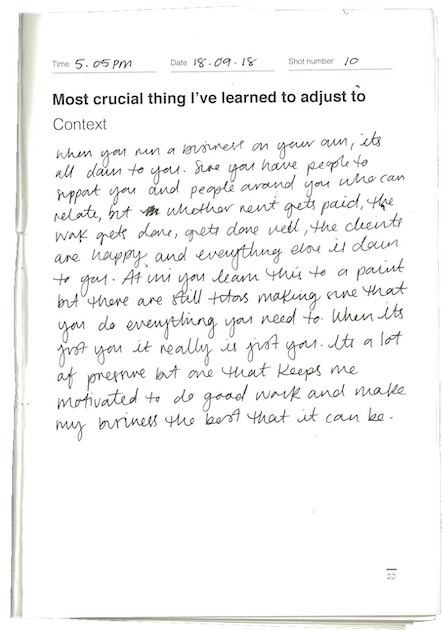 Time 5.05PM Date 18.09.18 Shot number 10
Most crucial thing I've learned to adjust to
Context
when you run a business on your own, its
all down to you. Sure you have people to
support you and people around you who can
relate, but whether rent gets paid, the
work gets done, gets done well, the clients
are happy and everything else is down
to you. At uni you learn this to a point
but there are still tutors making sure that
you do everything you need to. When its
just you it really is just you. Its a lot
of pressure but one that keeps me
motivated to do good work and make
my business the best that it can be.